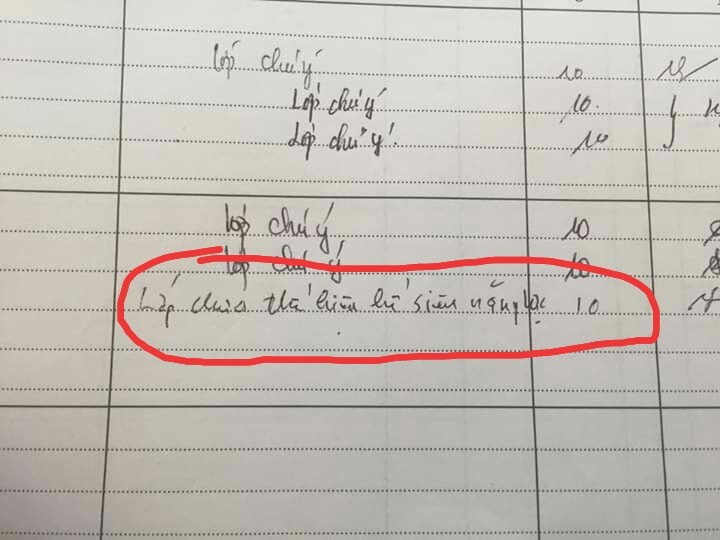 Lớp chú ý 10
Lớp chú ý 10
Lớp chú ý 10
Lớp chú ý 10
Lớp chú ý 10
Lớp chưa thể hiện hết siêu năng lực 10